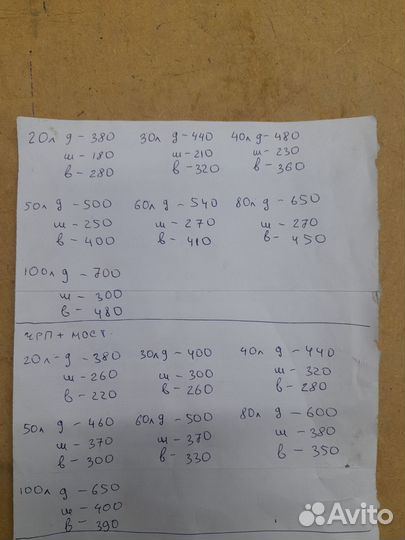 20л д-380 30л д-440 40л д-480
ш-180 ш-210 ш-230
в-280 в-320 в-360
50л д-500 60л д-540 80л д-650
ш-250 ш-270 ш-270
в-400 в-410 в-450
100л д-700
ш-300
в-480
ЧРП+мост.
20л-д-380 30л д-400 40л д-440
ш-260 ш-300 ш-320
в-220 в-260 в-280
50л д-460 60л д-500 80л д-600
ш-370 ш-370 ш-380
в-300 в-330 в-350
100л д-650
ш-400
в-390
Avito